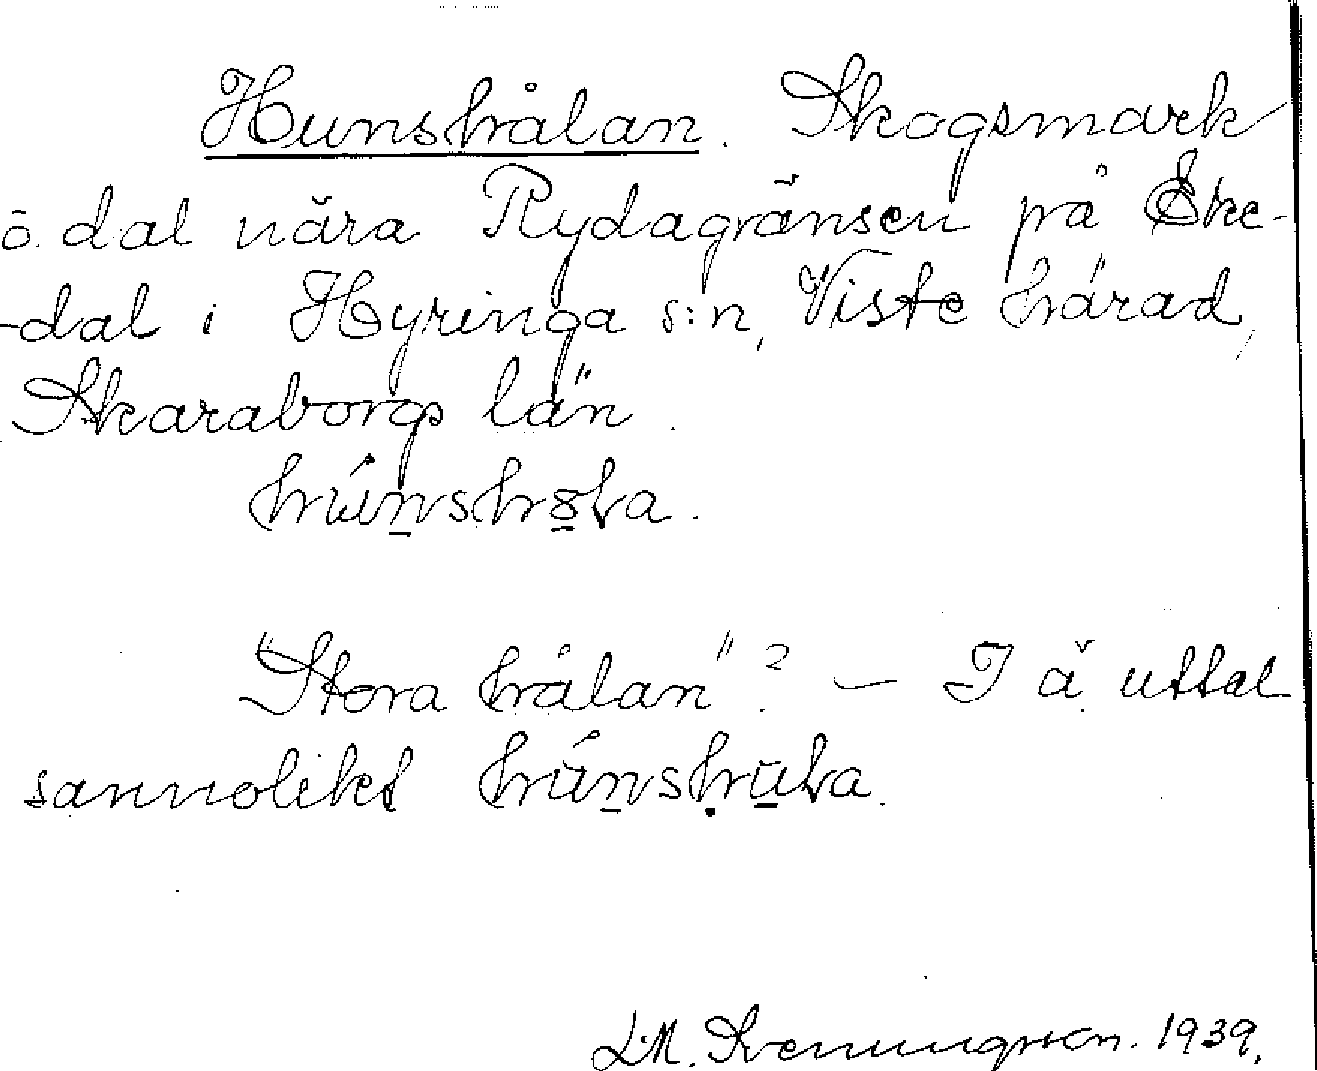 Hunshålan. Skogsmark
o. dal nära Rydagränsen på Eke-
-dal i Hyringa s:n, Viste härad,
Skaraborgs län.
"Stora hålan"? — I ä uttal
sannolikt
L.M. Svenungsson. 1939.